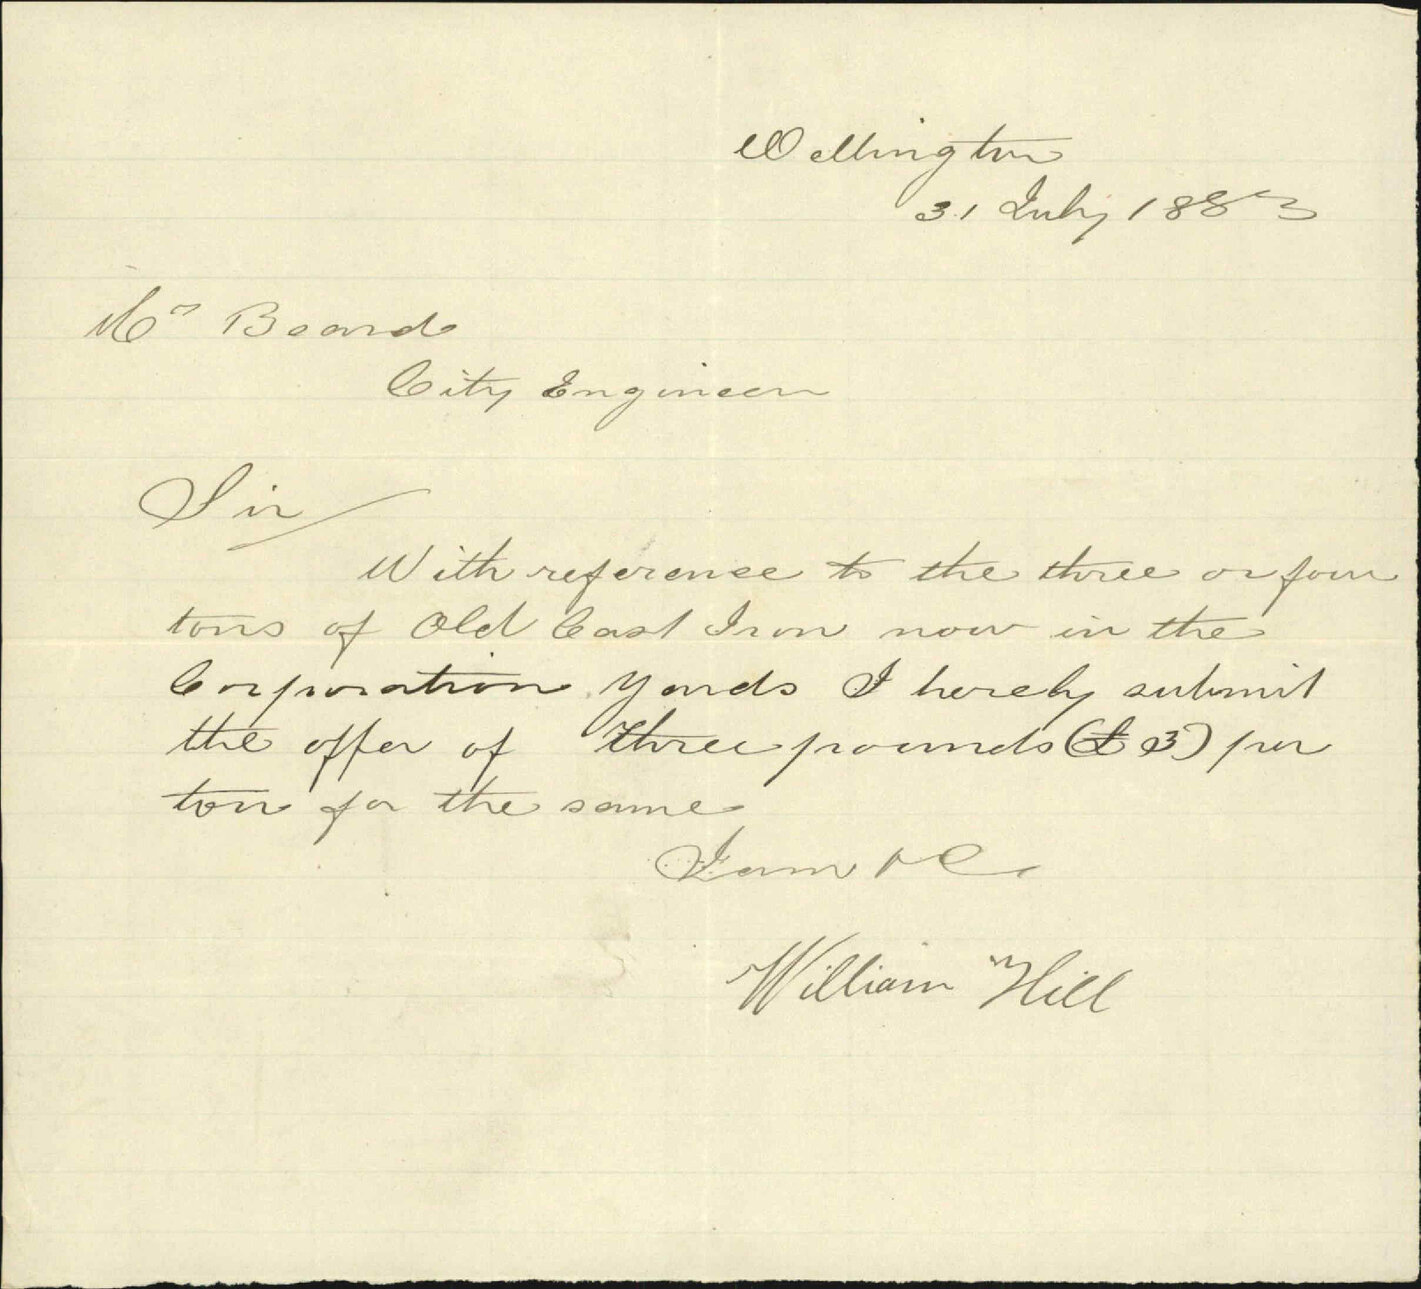 Wellington
31 July 1883
Mr Beard
City Engineer
Sir/
With reference to the three or four
tons of Old Cast Iron now in the
Corporation Yards I hereby submit
the offer of three pounds (£3) per
ton for the same
I am &c
William Hill